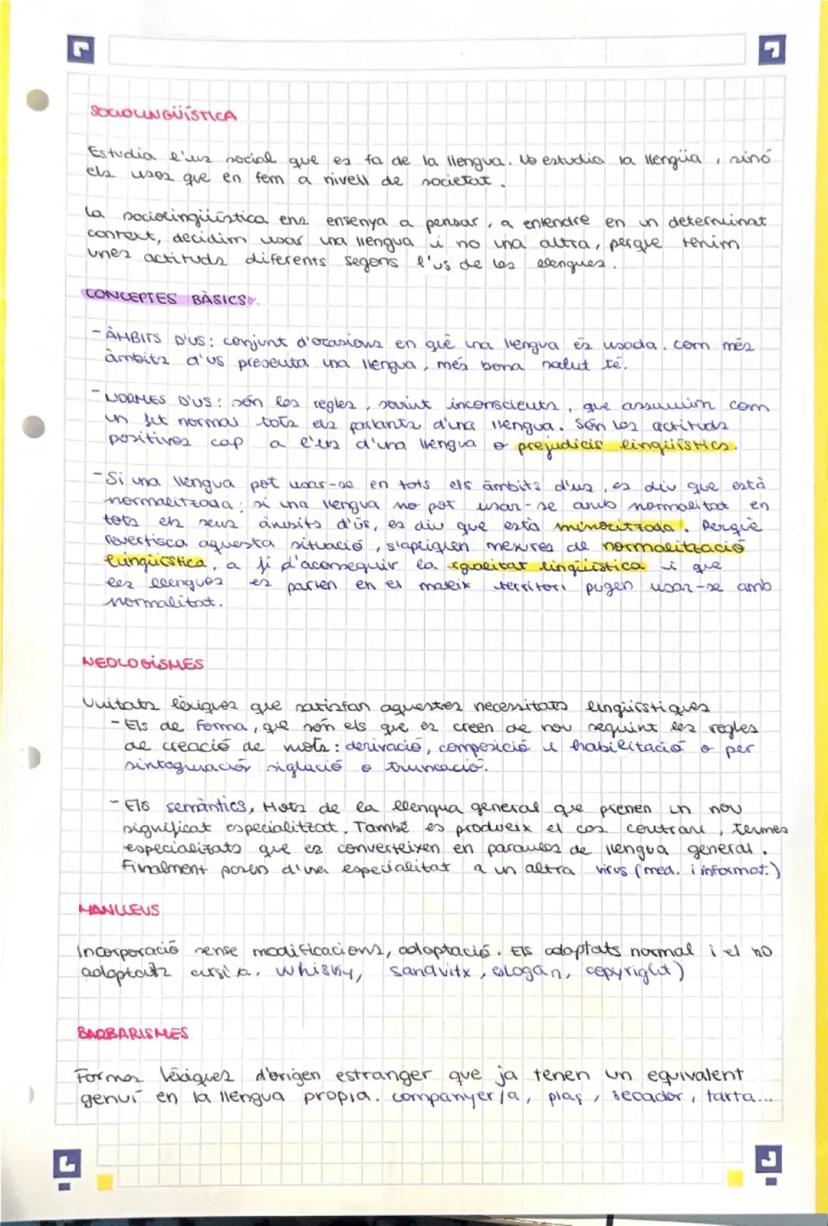 SOCIOLINGÜÍSTICA
Estudia l'us social que es fa de la llengua. No estudia la llengüa, sinó
els usos que en fem a nivell de societat.
La sociolingüística ens ensenya a pensar, a entendre en un determinat
context, decidim usar una llengua i no una altra, perque tenim
unes actituds diferents segons l'us de les llengues.
CONCEPTES BÀSICS.
- ÀMBITS D'US: conjunt d'ocasions en què una llengua és usada. Com més
àmbits d'us presenta una llengua, més bona salut té.
- NORMES D'US: són les regles, sovint inconscients, que assumim com
un fet normal tots els parlants d'una llengua. Són les actituds
positives cap a l'us d'una llengua o prejudicis lingüístics.
- Si una llengua pot usar-se en tots els àmbits d'us, es diu que està
normalitzada; si una llengua no pot usar-se amb normalitat en
tots els seus àmbits d'ús, es diu que està minoritzada. Perquè
revertisca aquesta situació, s'apliquen mesures de normalització
lingüística, a fi d'aconseguir la igualitat lingüística i que
les llengues es parlen en el mateix territori pugen usar-se amb
normalitat.
NEOLOGISMES
Unitats lèxiques que satisfan aquestes necessitats lingüístiques
- Els de forma, que són els que es creen de nou seguint les regles
de creació de mots: derivació, composició i habilitació o per
sintagmació, siglació o truncació.
- Els semàntics, Mots de la llengua general que prenen un nou
significat especialitzat. També es produeix el cas contrari, termes
especialitzats que es converteixen en paraules de llengua general.
Finalment passen d'una especialitat a un altra virus (med. i informat.)
MANLLEUS
Incorporació sense modificacions, adaptació. Els adaptats normal i el no
adaptats cursiva. Whisky, sandvitx, eslogan, copyright)
BARBARISMES
Formes lèxiques d'origen estranger que ja tenen un equivalent
genuí en la llengua propia. companyer/a, plaç, secador, tarta...